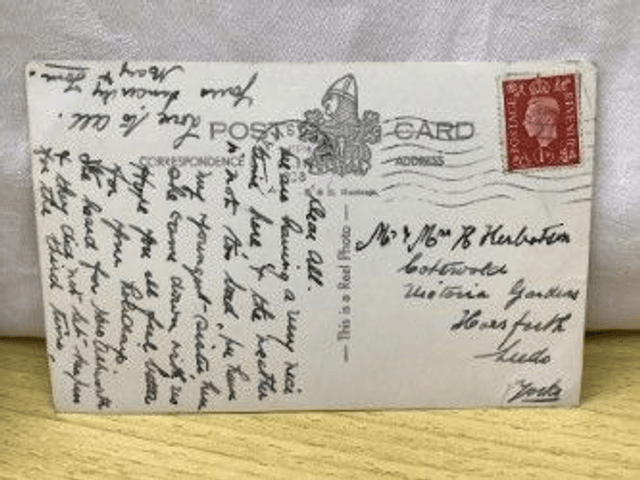 POST CARD
CORRESPONDENCE
ADDRESS
POSTAGE REVENUE
1D
— This is a Real Photo —
Dear All.
We are having a very nice
time here & the weather
is not too bad, we have
my youngest sister here
she came down with us
Hope you all feel better
for your
hard for
& they did not let
for the third time.
Love to all.
Yours sincerely
Mary &
Mr & Mrs H Herbotson
Cotswold
Victoria Gardens
Horsforth
Leeds
Yorks